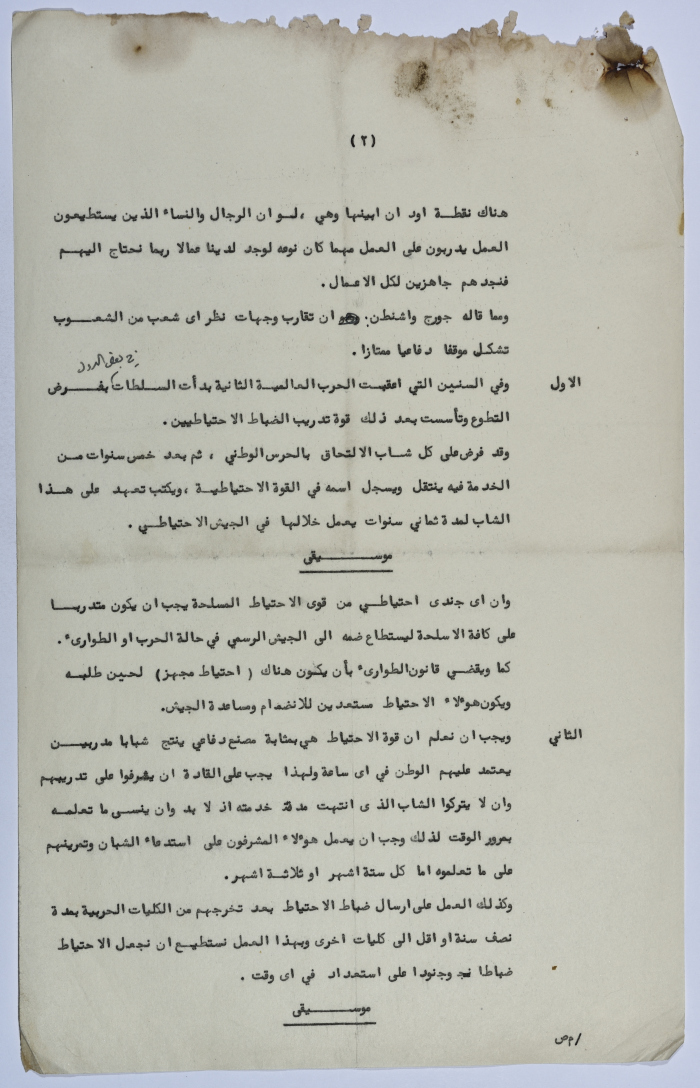 (٢)
هناك نقطة اود ان ابينها وهي ،لو ان الرجال والنساء الذين يستطيعون
العمل يدربون على العمل مهما كان نوعه لوجد لدينا عمالا ربما نحتاج اليهم
فنجدهم جاهزين لكل الاعمال .
ومما قاله جورج واشنطن: ان تقارب وجهات نظر اى شعب من الشعوب
تشكل موقفا دفاعيا ممتازا .
في بعض الدول
الاول وفي السنين التي اعقبت الحرب العالمية الثانية بدأت السلطات بفرض
التطوع وتأسست بعد ذلك قوة تدريب الضباط الاحتياطيين .
وقد فرض على كل شاب الالتحاق بالحرس الوطني ، ثم بعد خمس سنوات من
الخدمة فيه ينتقل ويسجل اسمه في القوة الاحتياطية ،ويكتب تعهد على هذا
الشاب لمدة ثماني سنوات يعمل خلالها في الجيش الاحتياطي .
موسيقى
وان اى جندى احتياطي من قوى الاحتياط المسلحة يجب ان يكون متدربا
على كافة الاسلحة ليستطاع ضمه الى الجيش الرسمي في حالة الحرب او الطوارىء .
كما ويقضي قانون الطوارىء بأن يكون هناك ( احتياط مجهز) لحين طلبه
ويكون هؤلاء الاحتياط مستعدين للانضمام ومساعدة الجيش.
الثاني ويجب ان نعلم ان قوة الاحتياط هي بمثابة مصنع دفاعي ينتج شبابا مدربين
يعتمد عليهم الوطن في اى ساعة ولهذا يجب على القادة ان يشرفوا على تدريبهم
وان لا يتركوا الشاب الذى انتهت مدة خدمته اذ لا بد وان ينسى ما تعلمه
بمرور الوقت لذلك وجب ان يعمل هؤلاء المشرفون على استدعاء الشبان وتمرينهم
على ما تعلموه اما كل ستة اشهر او ثلاثة اشهر .
وكذلك العمل على ارسال ضباط الاحتياط بعد تخرجهم من الكليات الحربية بمدة
نصف سنة او اقل الى كليات اخرى وبهذا العمل نستطيع ان نجعل الاحتياط
ضباطا وجنودا على استعداد في اى وقت .
موسيقى
/م ص